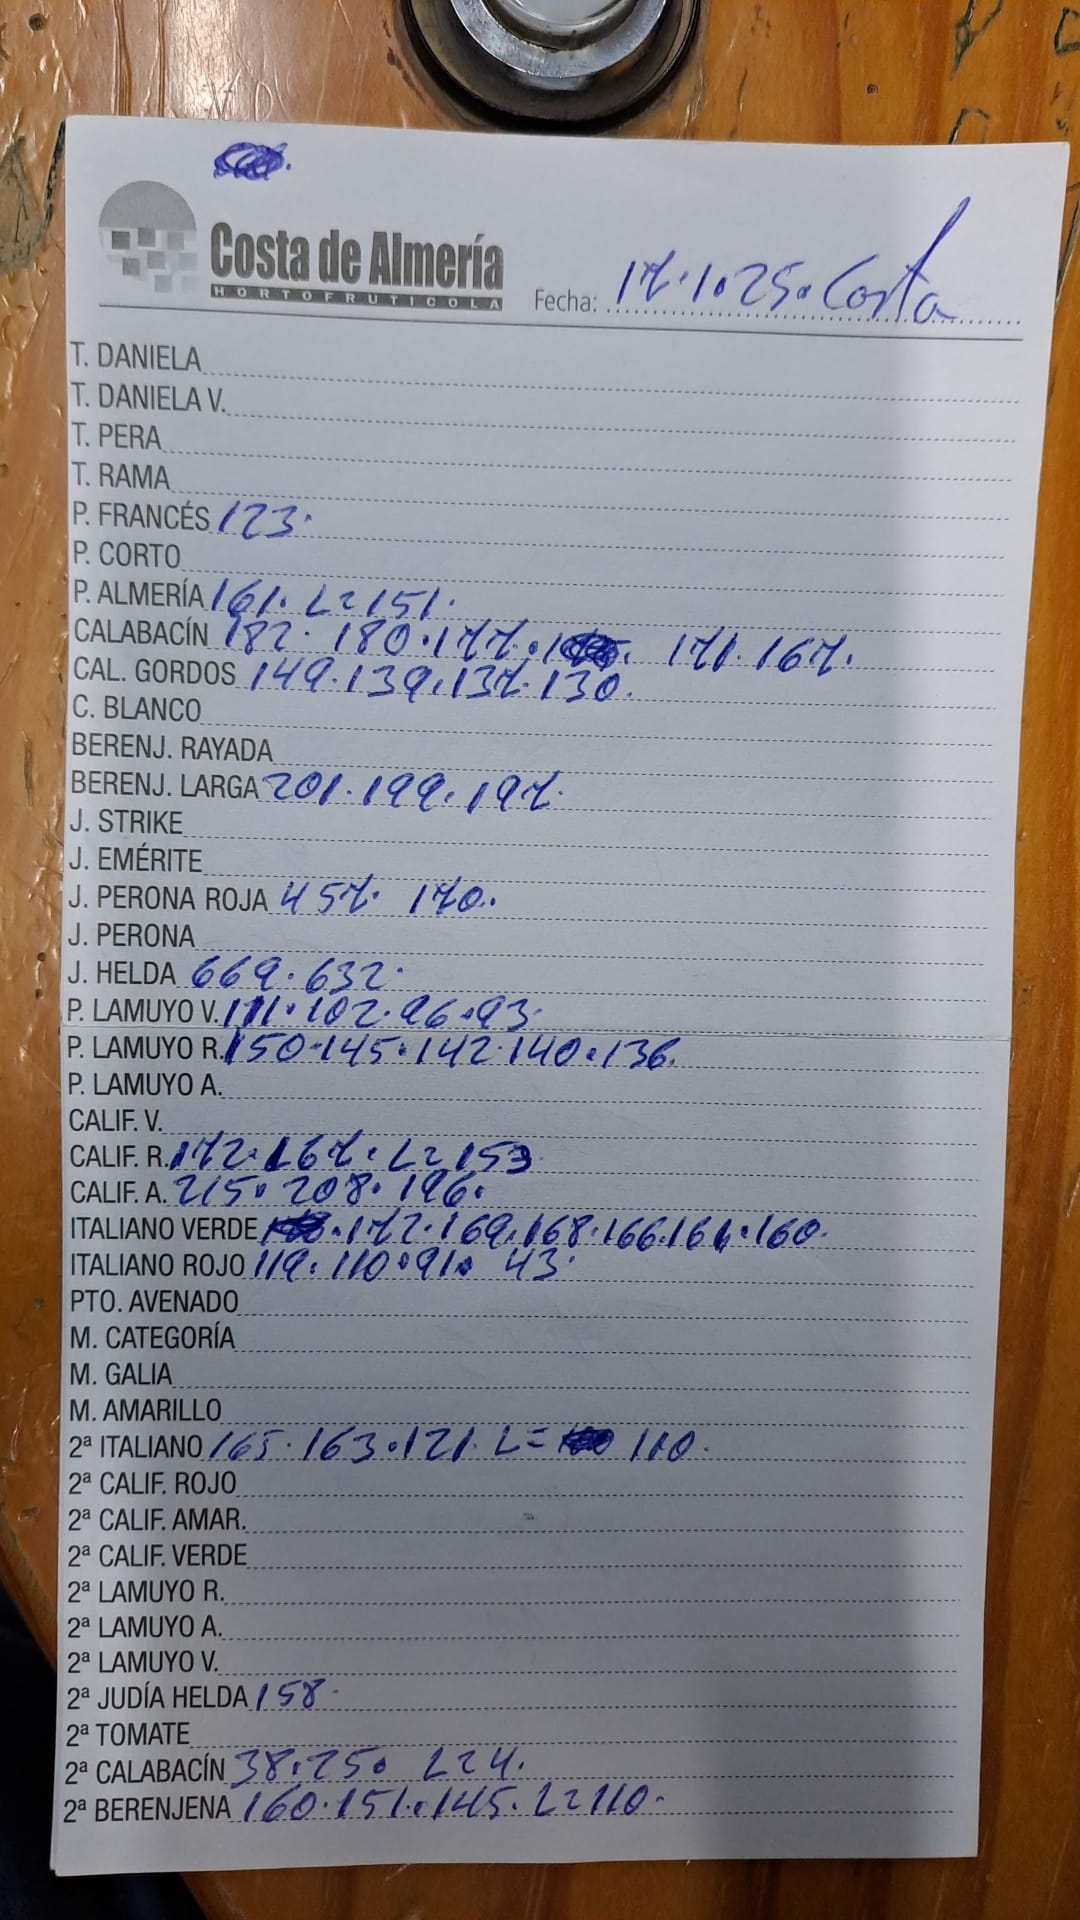 Costa de Almería
HORTOFRUTICOLA
Fecha: 17.1.25. Costa
T. DANIELA
T. DANIELA V.
T. PERA
T. RAMA
P. FRANCÉS 123.
P. CORTO
P. ALMERÍA 161. L=151.
CALABACÍN 182. 180.177. 171.167.
CAL. GORDOS 149.139.137.130.
C. BLANCO
BERENJ. RAYADA
BERENJ. LARGA 201.199.197.
J. STRIKE
J. EMÉRITE
J. PERONA ROJA 457. 170.
J. PERONA
J. HELDA 669.632.
P. LAMUYO V. 111.102.96.93.
P. LAMUYO R. 150.145.142.140.136.
P. LAMUYO A.
CALIF. V.
CALIF. R. 172.167. L=153
CALIF. A. 215. 208. 196.
ITALIANO VERDE 172.169.168.166.164.160.
ITALIANO ROJO 119.110.91. 43.
PTO. AVENADO
M. CATEGORÍA
M. GALIA
M. AMARILLO
2ª ITALIANO 165.163.121. L= 110.
2ª CALIF. ROJO
2ª CALIF. AMAR.
2ª CALIF. VERDE
2ª LAMUYO R.
2ª LAMUYO A.
2ª LAMUYO V.
2ª JUDÍA HELDA 158.
2ª TOMATE
2ª CALABACÍN 38.25. L=24.
2ª BERENJENA 160.151.145. L=110.